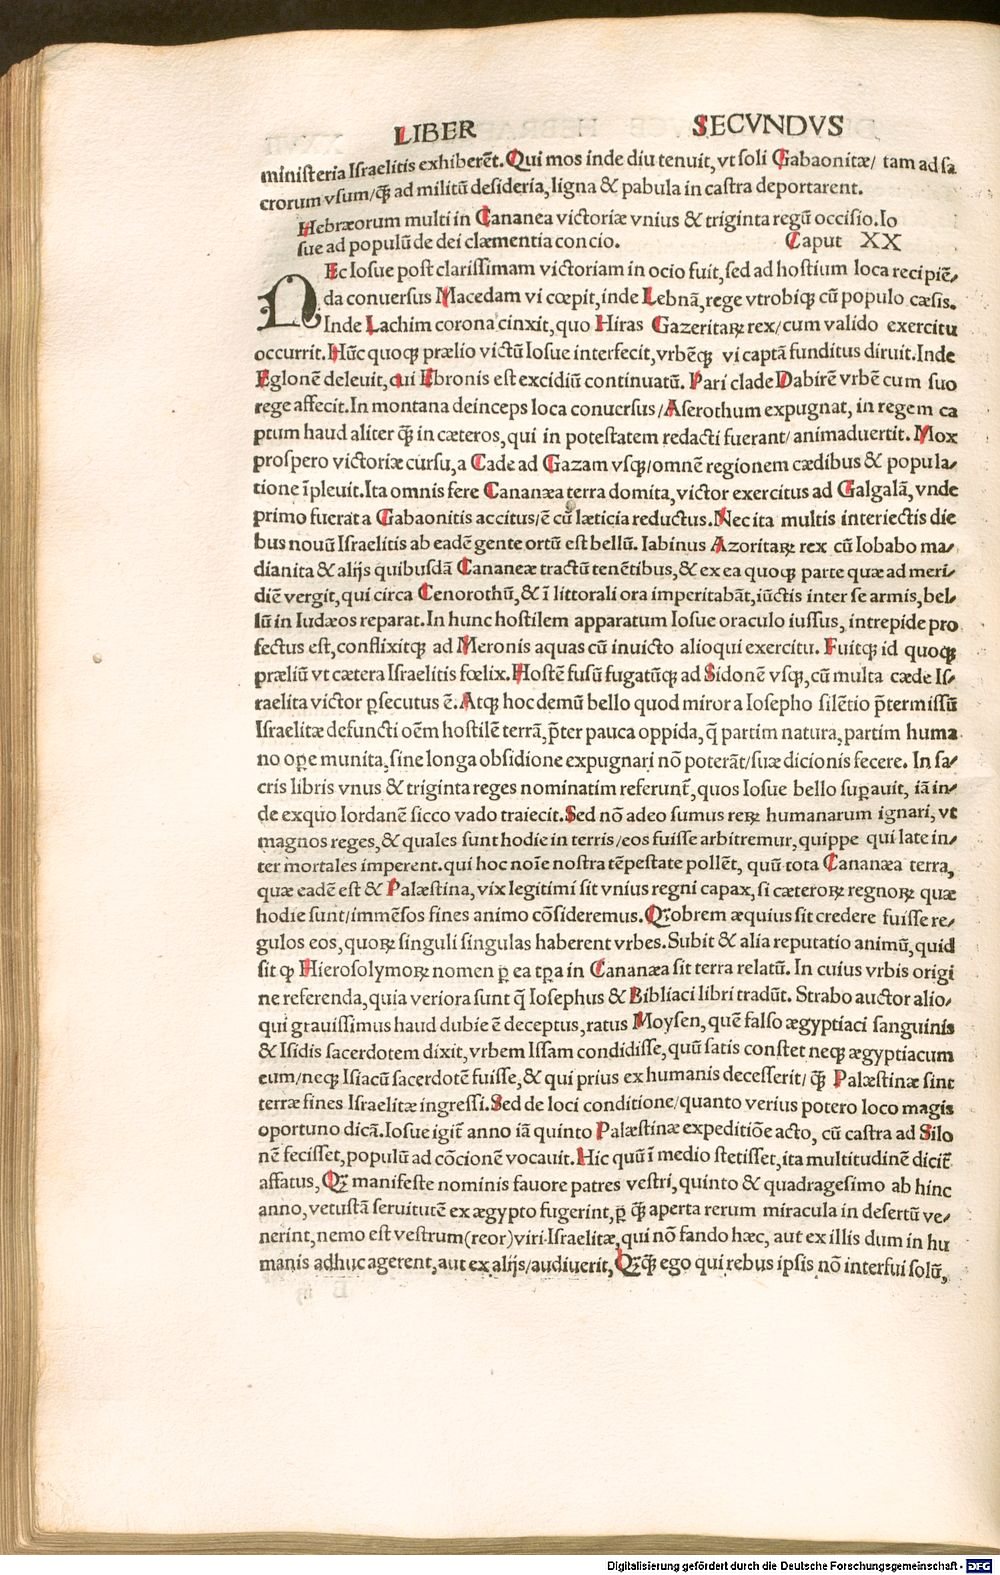 LIBER SECVNDVS
ministeria Israelitis exhiberēt. Qui mos inde diu tenuit, vt soli Gabaonitæ/ tam ad sa
crorum vsum/ꝗ̃ ad militū desideria, ligna & pabula in castra deportarent.
Hebræorum multi in Cananea victoriæ vnius & triginta regū occisio. Io
sue ad populū de dei clæmentia concio. Caput XX
NEc Iosue post clarissimam victoriam in ocio fuit, sed ad hostium loca recipiē/
da conuersus Macedam vi cœpit, inde Lebnā, rege vtrobiqꝫ cū populo cæsis.
Inde Lachim corona cinxit, quo Hiras Gazeritaꝝ rex/cum valido exercitu
occurrit. Hūc quoqꝫ prælio victū Iosue interfecit, vrbēqꝫ vi captā funditus diruit. Inde
Eglonē deleuit, cui Ebronis est excidiū continuatū. Pari clade Dabirē vrbē cum suo
rege affecit. In montana deinceps loca conuersus/Aserothum expugnat, in regem ca
ptum haud aliter ꝗ̃ in cæteros, qui in potestatem redacti fuerant/ animaduertit. Mox
prospero victoriæ cursu, a Cade ad Gazam vsqꝫ/omnē regionem cædibus & popula/
tione īpleuit. Ita omnis fere Cananæa terra domita, victor exercitus ad Galgalā, vnde
primo fuerat a Gabaonitis accitus/ē cū læticia reductus. Nec ita multis interiectis die
bus nouū Israelitis ab eadē gente ortū est bellū. Iabinus Azoritaꝝ rex cū Iobabo ma/
dianita & alijs quibusdā Cananeæ tractū tenētibus, & ex ea quoqꝫ parte quæ ad meri/
diē vergit, qui circa Cenorothū, & ī littorali ora imperitabāt, iūctis inter se armis, bel/
lū in Iudæos reparat. In hunc hostilem apparatum Iosue oraculo iussus, intrepide pro
fectus est, conflixitqꝫ ad Meronis aquas cū inuicto alioqui exercitu. Fuitqꝫ id quoqꝫ
præliū vt cætera Israelitis fœlix. Hostē fusū fugatūqꝫ ad Sidonē vsqꝫ, cū multa cæde Is/
raelita victor ꝑsecutus ē. Atqꝫ hoc demū bello quod miror a Iosepho silētio p̄termissū
Israelitæ defuncti oēm hostilē terrā, p̄ter pauca oppida, q̄ partim natura, partim huma
no ope munita, sine longa obsidione expugnari nō poterāt/suæ dicionis fecere. In sa/
cris libris vnus & triginta reges nominatim referunt̄, quos Iosue bello suꝑauit, iā in/
de exquo Iordanē sicco vado traiecit. Sed nō adeo sumus reꝝ humanarum ignari, vt
magnos reges, & quales sunt hodie in terris/eos fuisse arbitremur, quippe qui late in/
ter mortales imperent. qui hoc noīe nostra tēpestate pollēt, quū tota Cananæa terra,
quæ eadē est & Palæstina, vix legitimi sit vnius regni capax, si cæteroꝝ regnoꝝ quæ
hodie sunt/immēsos fines animo cōsideremus. Qꝛobrem æquius sit credere fuisse re/
gulos eos, quoꝝ singuli singulas haberent vrbes. Subit & alia reputatio animū, quid
sit ꝙ Hierosolymoꝝ nomen ꝑ ea tꝑa in Cananæa sit terra relatū. In cuius vrbis origi
ne referenda, quia veriora sunt q̄ Iosephus & Bibliaci libri tradūt. Strabo auctor alio/
qui grauissimus haud dubie ē deceptus, ratus Moysen, quē falso ægyptiaci sanguinis
& Isidis sacerdotem dixit, vrbem Issam condidisse, quū satis constet neqꝫ ægyptiacum
eum/neqꝫ Isiacū sacerdotē fuisse, & qui prius ex humanis decesserit/ ꝗ̃ Palæstinæ sint
terræ fines Israelitæ ingressi. Sed de loci conditione/quanto verius potero loco magis
oportuno dicā. Iosue igit̄ anno iā quinto Palæstinæ expeditiōe acto, cū castra ad Silo
nē fecisset, populū ad cōcionē vocauit. Hic quū ī medio stetisset, ita multitudinē dicit̄
affatus, Qꝛ manifeste nominis fauore patres vestri, quinto & quadragesimo ab hinc
anno, vetustā seruitutē ex ægypto fugerint, ꝑ ꝗ̃ aperta rerum miracula in desertū ve/
nerint, nemo est vestrum(reor)viri Israelitæ, qui nō fando hæc, aut ex illis dum in hu
manis adhuc agerent, aut ex alijs/audiuerit, Qꝛꝗ̃ ego qui rebus ipsis nō interfui solū,
Digitalisierung gefördert durch die Deutsche Forschungsgemeinschaft - DFG